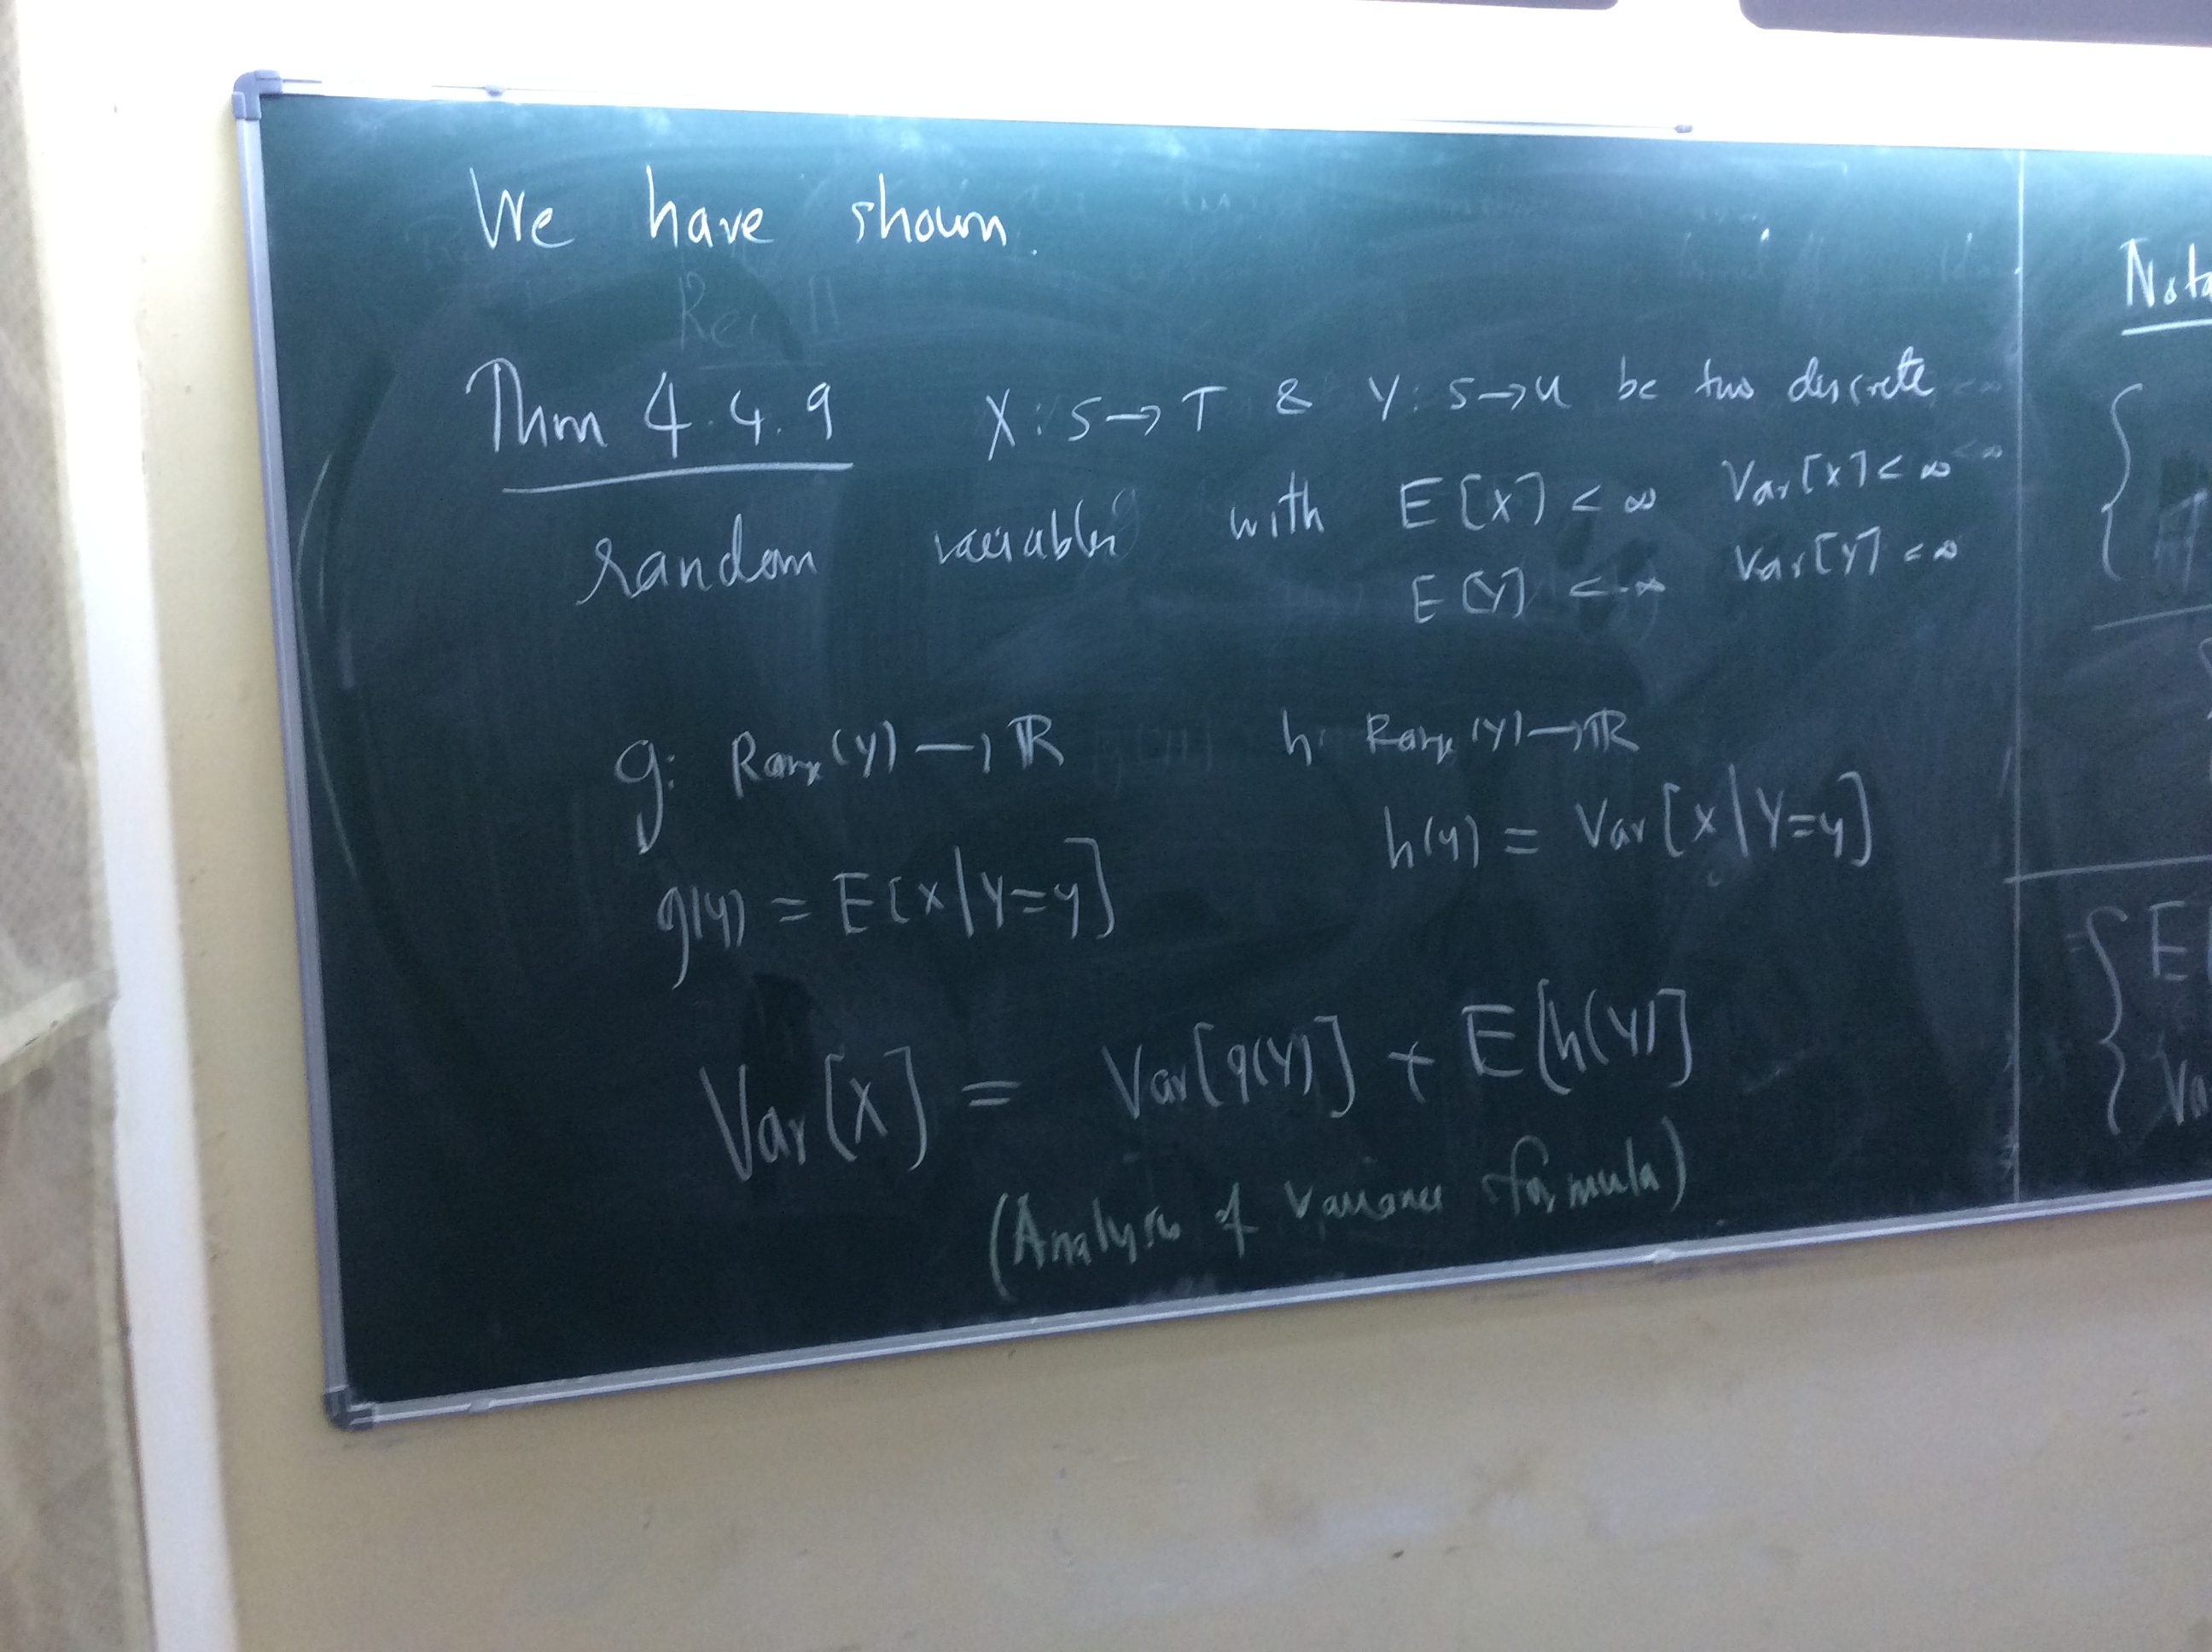 We have shown.
Thm 4.4.9 X: S→T & Y: S→U be two discrete
random variables with E[X] < ∞ Var[X] < ∞
E[Y] < ∞ Var[Y] < ∞
g: Range(Y) → ℝ h: Range(Y) → ℝ
g(y) = E[X|Y=y] h(y) = Var[X|Y=y]
Var[X] = Var[g(Y)] + E[h(Y)]
(Analysis of Variance formula)
Nota
E[
Va